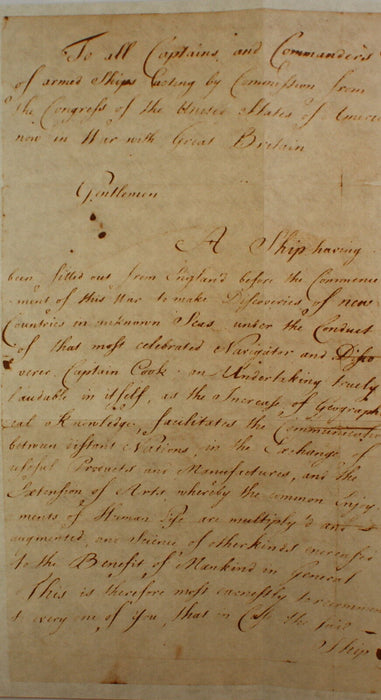 To all Captains and Commanders
of armed Ships acting by Commission from
the Congress of the United States of America
now in War with Great Britain
Gentlemen
A Ship having
been fitted out from England before the Commence
-ment of this War to make Discoveries of new
Countries in unknown Seas, under the Conduct
of that most celebrated Navigator and Disco
verer Captain Cook; an Undertaking truely
laudable in itself, as the Increase of Geograph
ical Knowledge, facilitates the Communication
between distant Nations, in the Exchange of
useful Products and Manufactures, and the
Extension of Arts, whereby the common Enjoy
ments of Human life are multiply'd and
augmented, and Science of other kinds encreased
to the Benefit of Mankind in General
This is therefore most earnestly to recommen
every one of you, that in Case the said
Ship